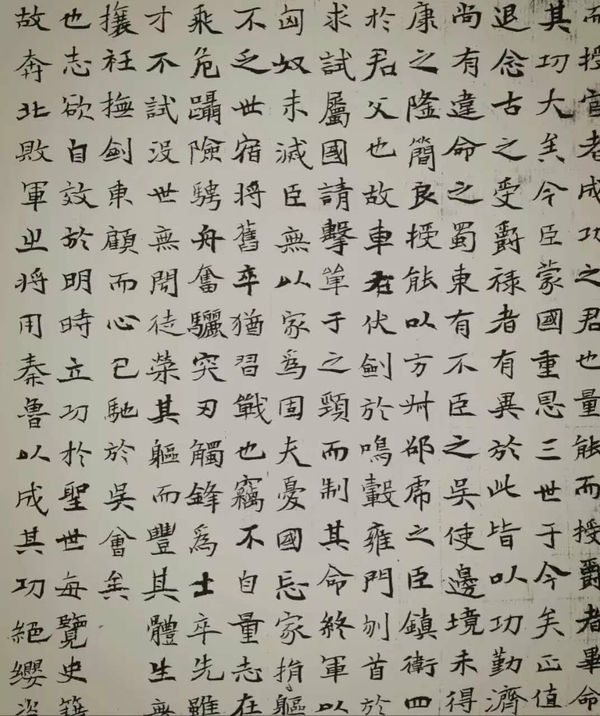 而授官者成功之君也量能而授爵者畢命
其功大矣今臣蒙國重恩三世于今矣正值
退念古之受爵禄者有異於此皆以功勤濟
尚有違命之蜀東有不臣之吳使邊境未得
康之隆簡良授能以方卅邵虎之臣鎮衛四
於君父也故車右伏劍於鳴轂雍門刎首於
求試屬國請擊單于之頸而制其命終軍以
匈奴未滅臣無以家爲固夫憂國忘家捐軀
不乏世宿將舊卒猶習戰也竊不自量志在
乘危躡險騁舟奮驪突刃觸鋒爲士卒先雖
才不試没世無聞徒榮其軀而豐其體生無
攘衽撫劍東顧而心已馳於吳會矣
也志欲自效於明時立功於聖世每覽史籍
故奔北敗軍之将用秦魯以成其功絕纓盜